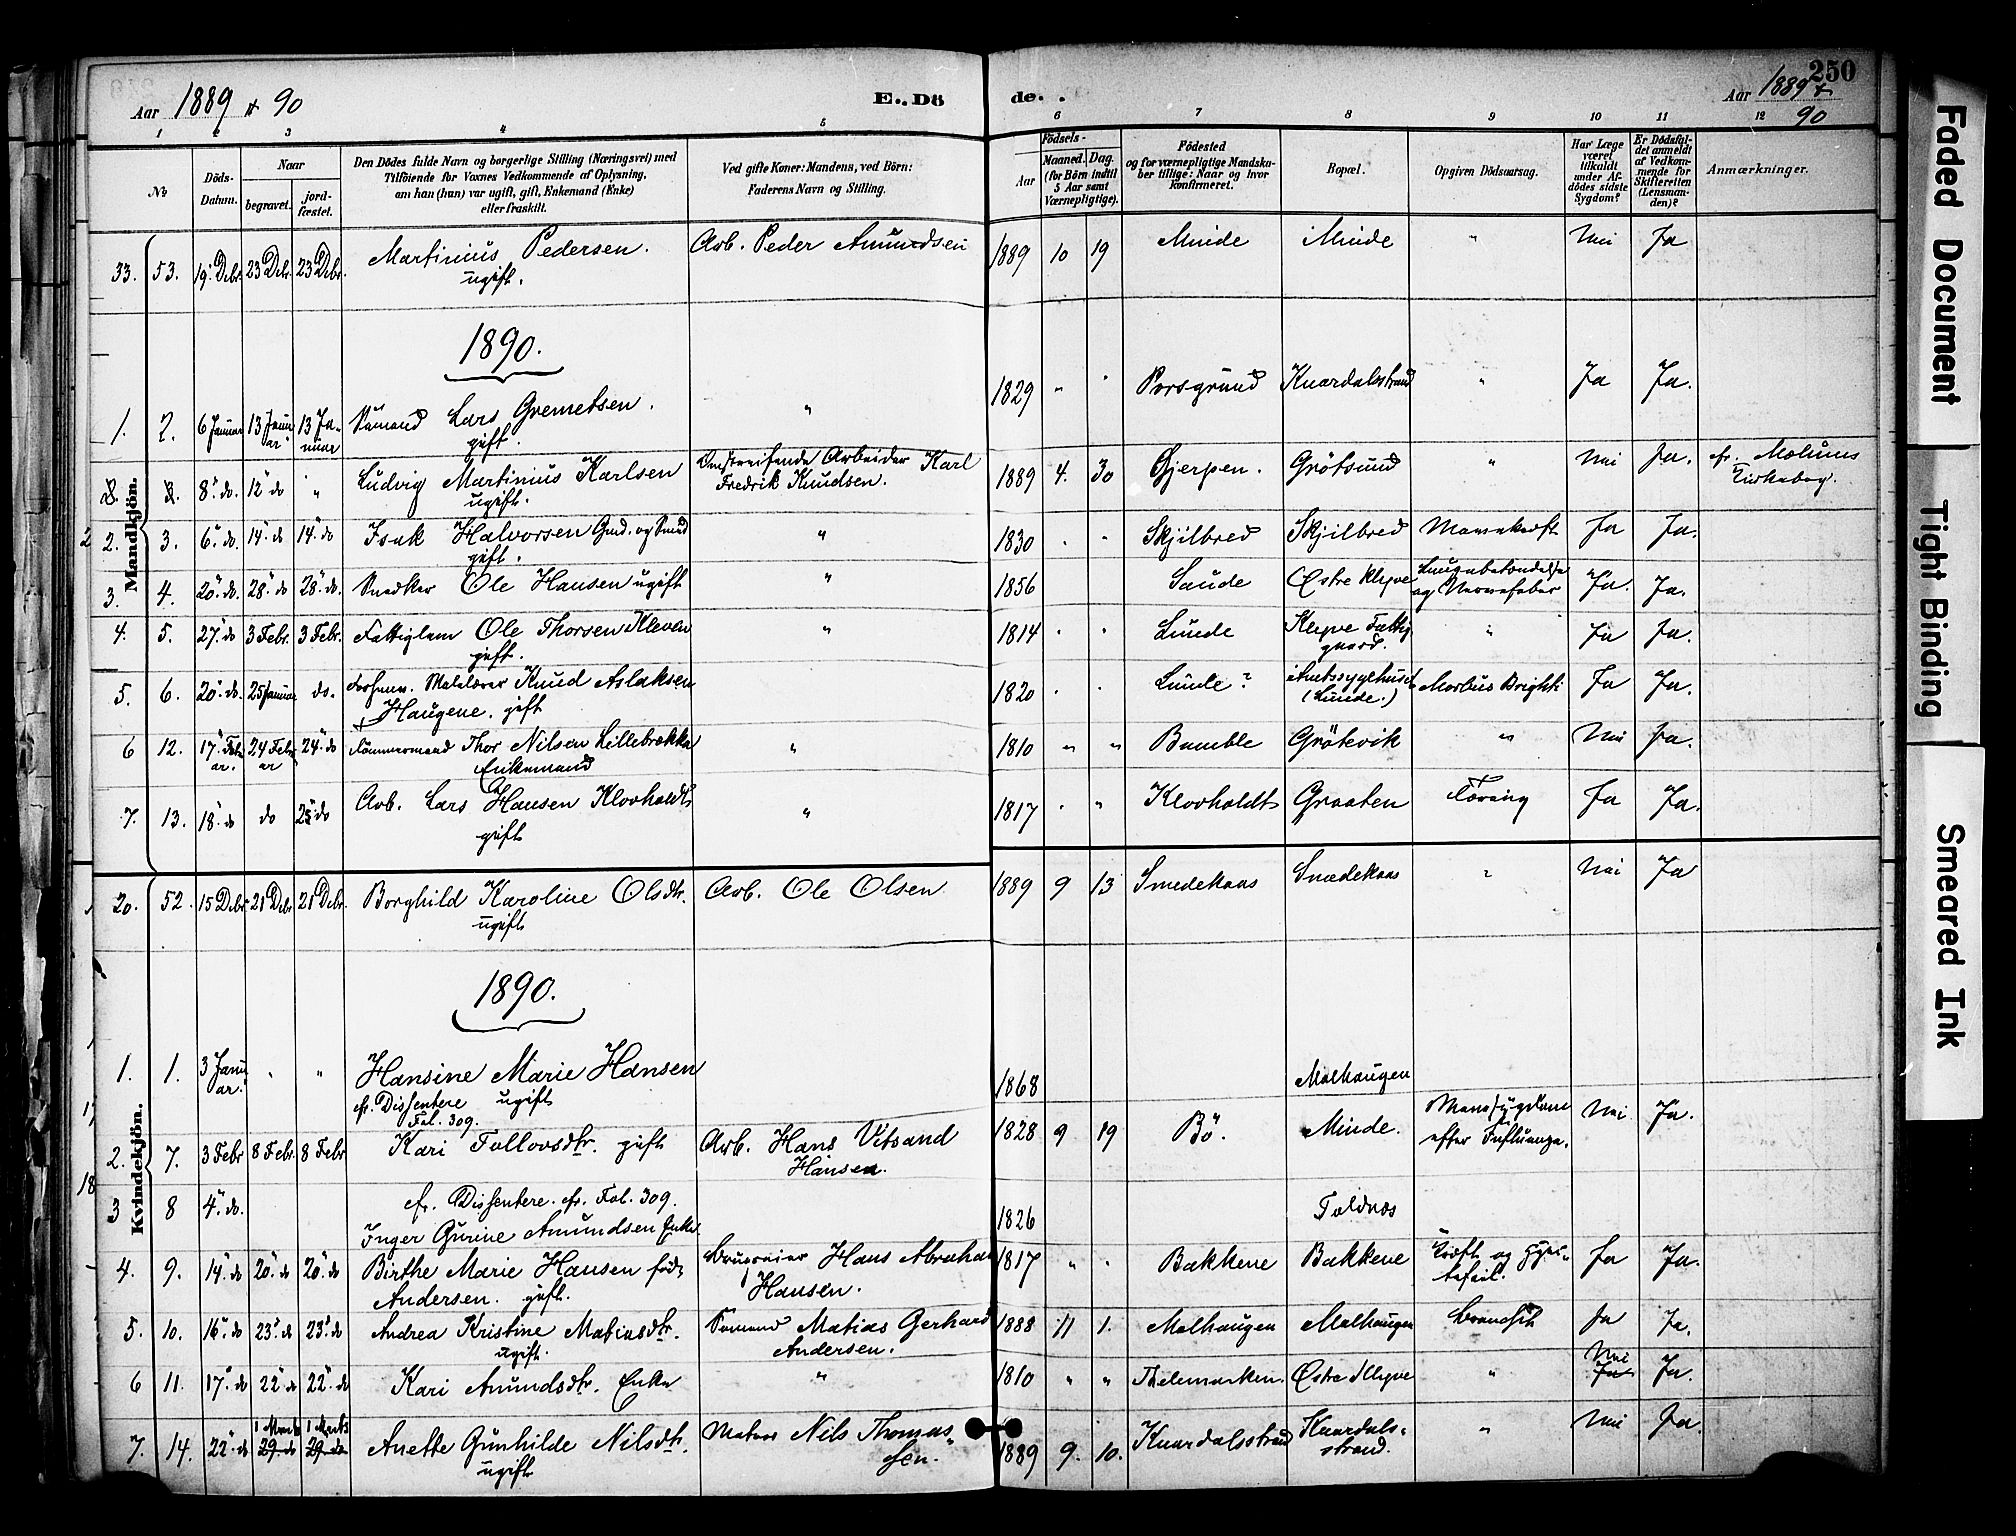 250
Aar 1889 & 90
E.. Dö
de. .
Aar 1889 & 90
1 2 3 4 5 6 7 8 9 10 11 12
No
Döds-
Datum.
Naar
begravet.
jord-
fæstet.
Den Dödes fulde Navn og borgerlige Stilling (Næringsvei) med
Tilföiende for Voxnes Vedkommende af Oplysning,
om han (hun) var ugift, gift, Enkemand (Enke)
eller fraskilt.
Ved gifte Koner: Mandens, ved Börn:
Faderens Navn og Stilling.
Födsels-
Aar
Maaned. Dag.
(for Börn indtil
5 Aar samt
Værnepligtige).
Födested
og for værnepligtige Mandska-
ber tillige: Naar og hvor
konfirmeret.
Bopæl.
Opgiven Dödsaarsag.
Har Læge
været
tilkaldt
under Af-
dödes sidste
Sygdom?
Er Dödsfal-
det anmeldt
af Vedkom-
mende for
Skifteretten
(Lensman-
den)?
Anmærkninger.
Mandkjön.
33. 53. 19. Debr. 23 Debr. 23 Debr. Martinius Pedersen. Arb. Peder Amundsen 1889 10 19 Minde Minde " Nei Ja
ugift.
1890.
1. 2. 6 Januar 13 Januar 13 Januar Sömand Lars Gremetsen. " 1829 " " Porsgrund Knardalsstrand " Ja Ja.
gift.
8. 8. 8. do. 12 do " Ludvig Martinius Karlsen Omstreifende Arbeider Karl 1889 4. 30 Gjerpen. Grötsund " Nei Ja. cfr. Molums
ugift. Fredrik Knudsen. Kirkebog.
2. 3. 6. do. 14. do 14. do Isak Halvorsen Gmd. og Smed " 1830 " " Skjilbred Skjilbred Mavekræft Ja Ja.
gift.
3. 4. 20. do. 28. do 28. do. Snedker Ole Hansen ugift " 1856 Saude Østre Klyve Lungebetændelse Ja. Ja.
og Nervefeber
4. 5. 27. do 3 Febr. 3 Febr. Fattiglem Ole Thorsen Kleven " 1814 " " Lunde Klyve Fattig " Ja Ja.
gift. gaard.
5. 6. 20. do. 25 Januar do. Knud Aslaksen 1820 " " Lunde? Amtssygehuset Morbus Brighti Ja Ja.
Haugene. gift (Lunde.)
6 12. 17. Februar. 24 Februar 24. do Tömmermand Thor Nilsen Lillebrække " 1810 " " Bamble Grötevik " Nei Ja.
Enkemand
7. 13. 18. do do 25 do Arb. Lars Hansen Klovholdt " 1817 " " Klovholdt Graaten Tæring Ja Ja.
gift
Kvindekjön.
20. 52. 15 Debr 21 Debr 21 Debr. Borghild Karoline Olsdtr. Arb. Ole Olsen 1889 9 13 Smedekaas Smedekaas " Nei Ja
ugift
1890.
1. 1. 3 Januar. " " Hansine Marie Hansen 1868 Malhaugen
cfr. Dissentere ugift
Fol. 309.
2. 7. 3 Febr 8 Febr. 8 Febr Kari Tollovsdtr. gift Arb. Hans Vetsand 1828 9 19 Bö. Minde. Nei Ja.
Hansen. efter Influenza.
3 8 4. do. cfr. Dissentere. cfr. Fol. 309. 1826 Foldnæs
Inger Gurine Amundsen Enke
4. 9. 14. do 20. do 20. do. Birthe Marie Hansen föd Brugseier Hans Abraham 1817 " " Bakkene Bakkene Ja Ja.
Andersen. gift. Hansen.
5. 10. 16. do 23. do 23. do Andrea Kristine Matiasdtr. Sömand Matias Gerhard 1888 11 1. Malhaugen Malhaugen Ja Ja.
ugift. Andersen.
6 11. 17. do 22. do 22. do Kari Amundsdtr. Enke " 1810 " " Thelemarken. Østre Klyve " Nei Ja Ja.
7. 14. 22. do 1 Marts 29 do 1 Marts 29 do Anette Gunhilde Nilsdtr. Matros Nils Thomas- 1889 9. 10. Knardalsstrand Knardals- " Nei Ja.
ugift sen. strand.
Faded Document
Tight Binding
Smeared Ink